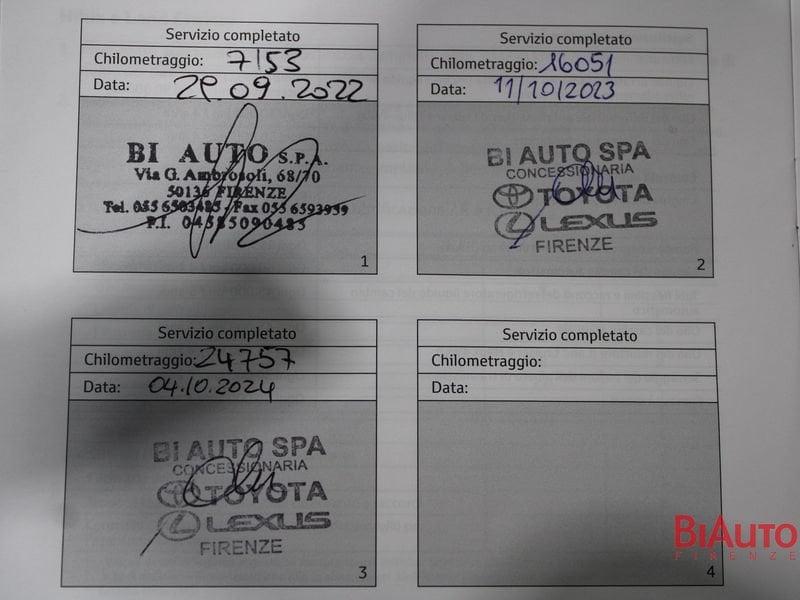 Servizio completato
Chilometraggio: 7153
Data: 29.09.2022
BI AUTO S.P.A.
Via G. Ambrosoli, 68/70
50136 FIRENZE
Tel. 055 6503485 / Fax 055 6593939
P.I. 04585090485
1
Servizio completato
Chilometraggio: 16051
Data: 11/10/2023
BI AUTO SPA
CONCESSIONARIA
TOYOTA
LEXUS
FIRENZE
2
Servizio completato
Chilometraggio: 24757
Data: 04.10.2024
BI AUTO SPA
CONCESSIONARIA
TOYOTA
LEXUS
FIRENZE
3
Servizio completato
Chilometraggio:
Data:
4
BIAUTO
FIRENZE